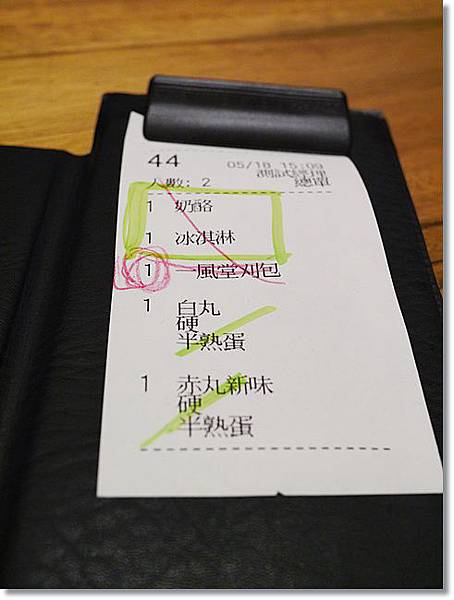 44
05/18 15:09
測試經理
人數: 2
總單
1 奶酪
1 冰淇淋
1 一風堂刈包
1 白丸
硬
半熟蛋
1 赤丸新味
硬
半熟蛋